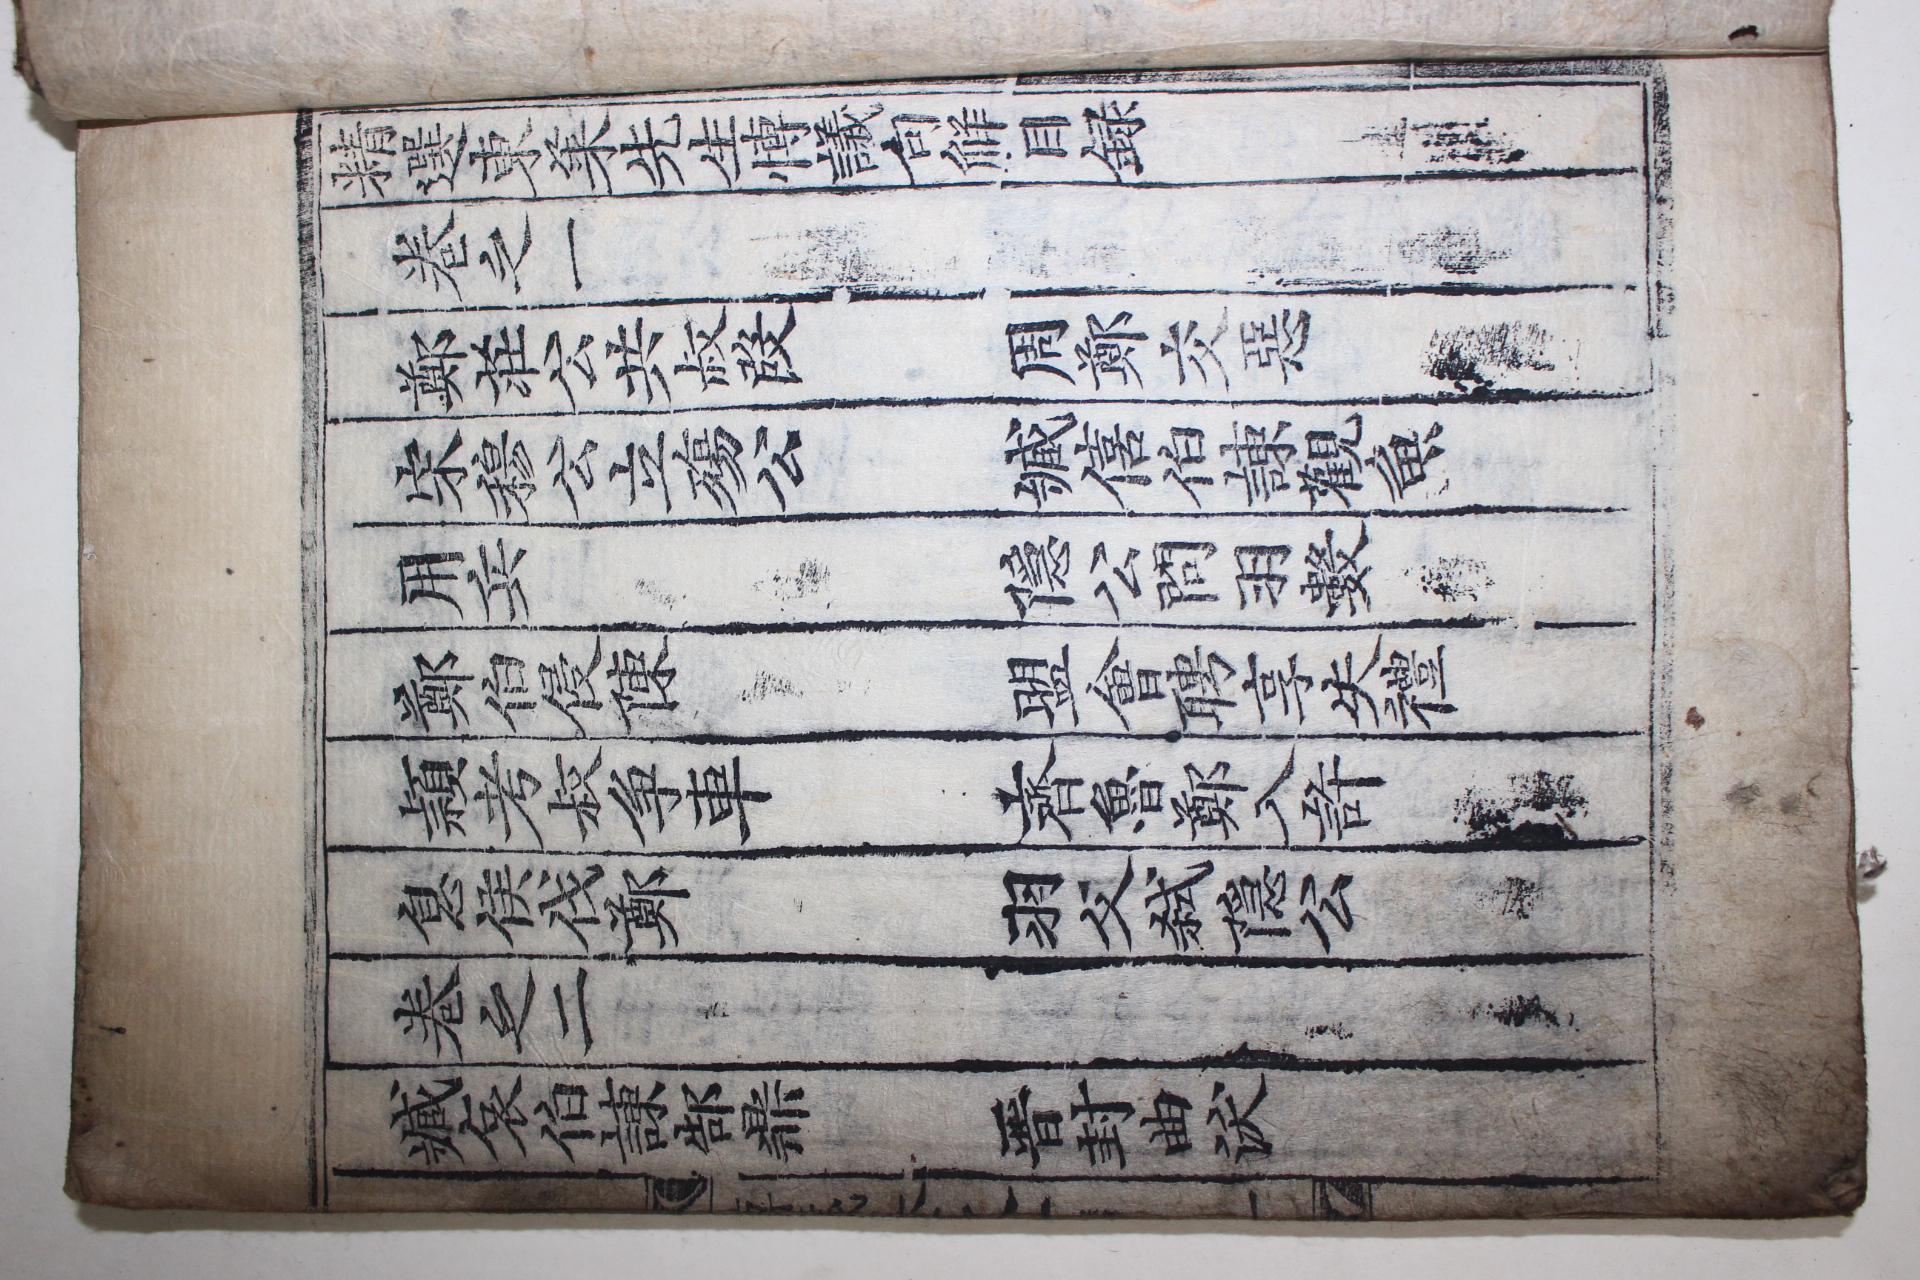 精選東萊先生博議句解目錄
卷之一
鄭莊公共叔段　周鄭交惡
宋穆公立殤公　臧僖伯諫觀魚
用兵　隱公問羽數
鄭伯侵陳　盟會聘享失禮
穎考叔爭車　齊魯鄭入許
息侯伐鄭　羽父弑隱公
卷之二
臧哀伯諫郜鼎　晉封曲沃